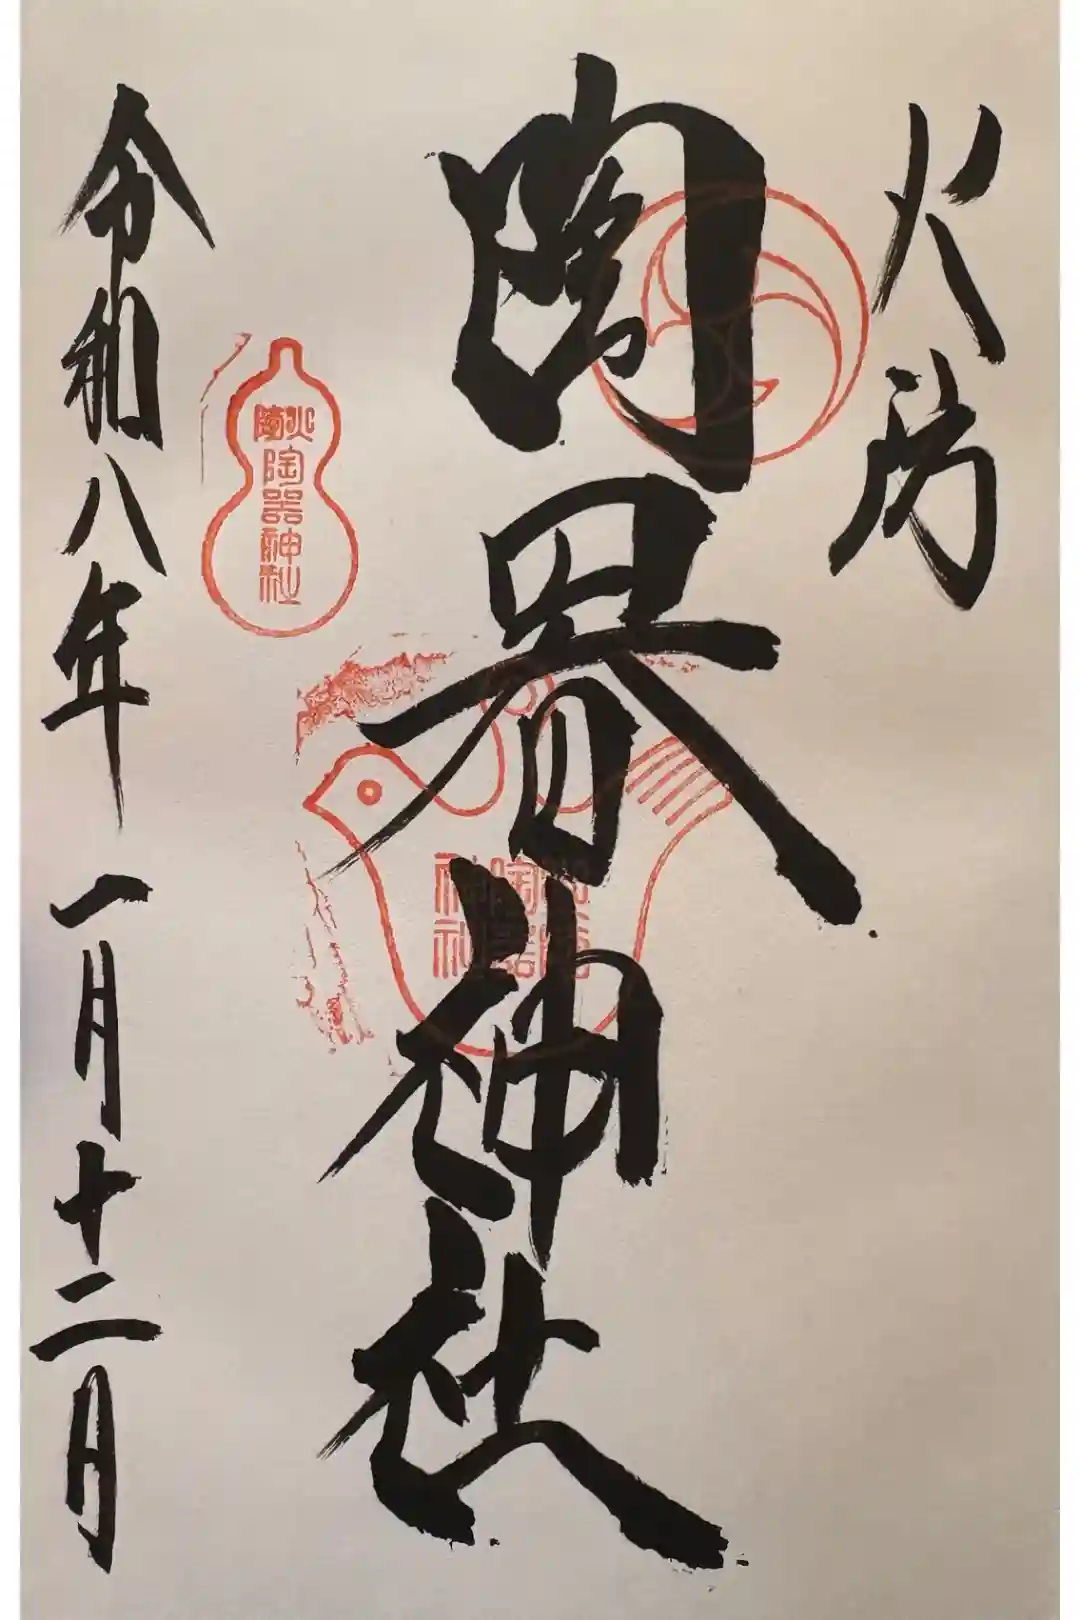 火防
陶器神社
令和八年一月十二日
火防
陶器神社
火防
陶器
神社